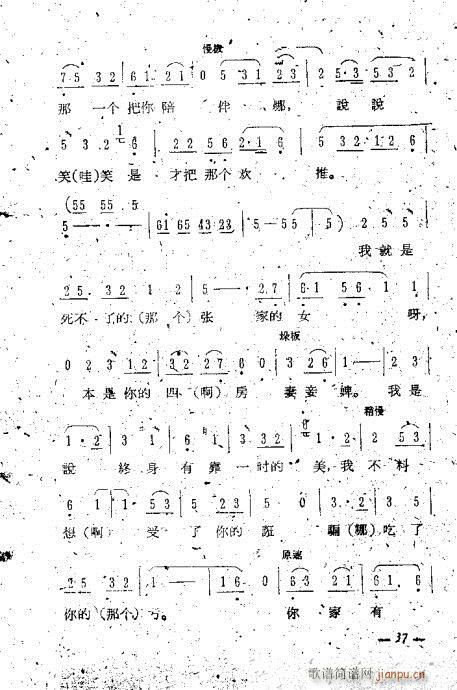 慢板
75 32 | 61 21 | 0 5 31 23 | 2 5·3 53 2 |
那 一个 把你 陪 伴 娜, 說 說
5 3 2 1 6 | 22 56 2·1 6 | 5 32 12 6 |
笑(哇)笑 是 才把 那个 欢 推。
(55 55 5
5 - - - | 61 65 43 23 | 5 - 55 | 5 -) | 2 5 5 |
我 就 是
25 32 1 2 | 5 - - 27 | 61 56 1 1 |
死不了的(那个)张 家的 女 呀,
垛板
0 2 3 12 | 3 32 27 6 0 | 3 26 | 1 - | 2 23 |
本是你的四(啊)房 妻妾婢。我是
稍慢
1·2 | 3 1 | 6 1 | 3 32 | 1 1·2 | 2 53 |
說 終身有靠一时的 美,我不料
6 1 | 1 53 | 5 23 5 | 0 1 | 3·2 | 3 5 |
想(啊) 受了你的 誆 騙(娜)吃了
原速
25 32 | 1 - | 1 6 | 0 63 21 | 61 6 |
你的(那个)亏。 你 家 有
— 37 —
歌谱简谱网
jianpu.cn